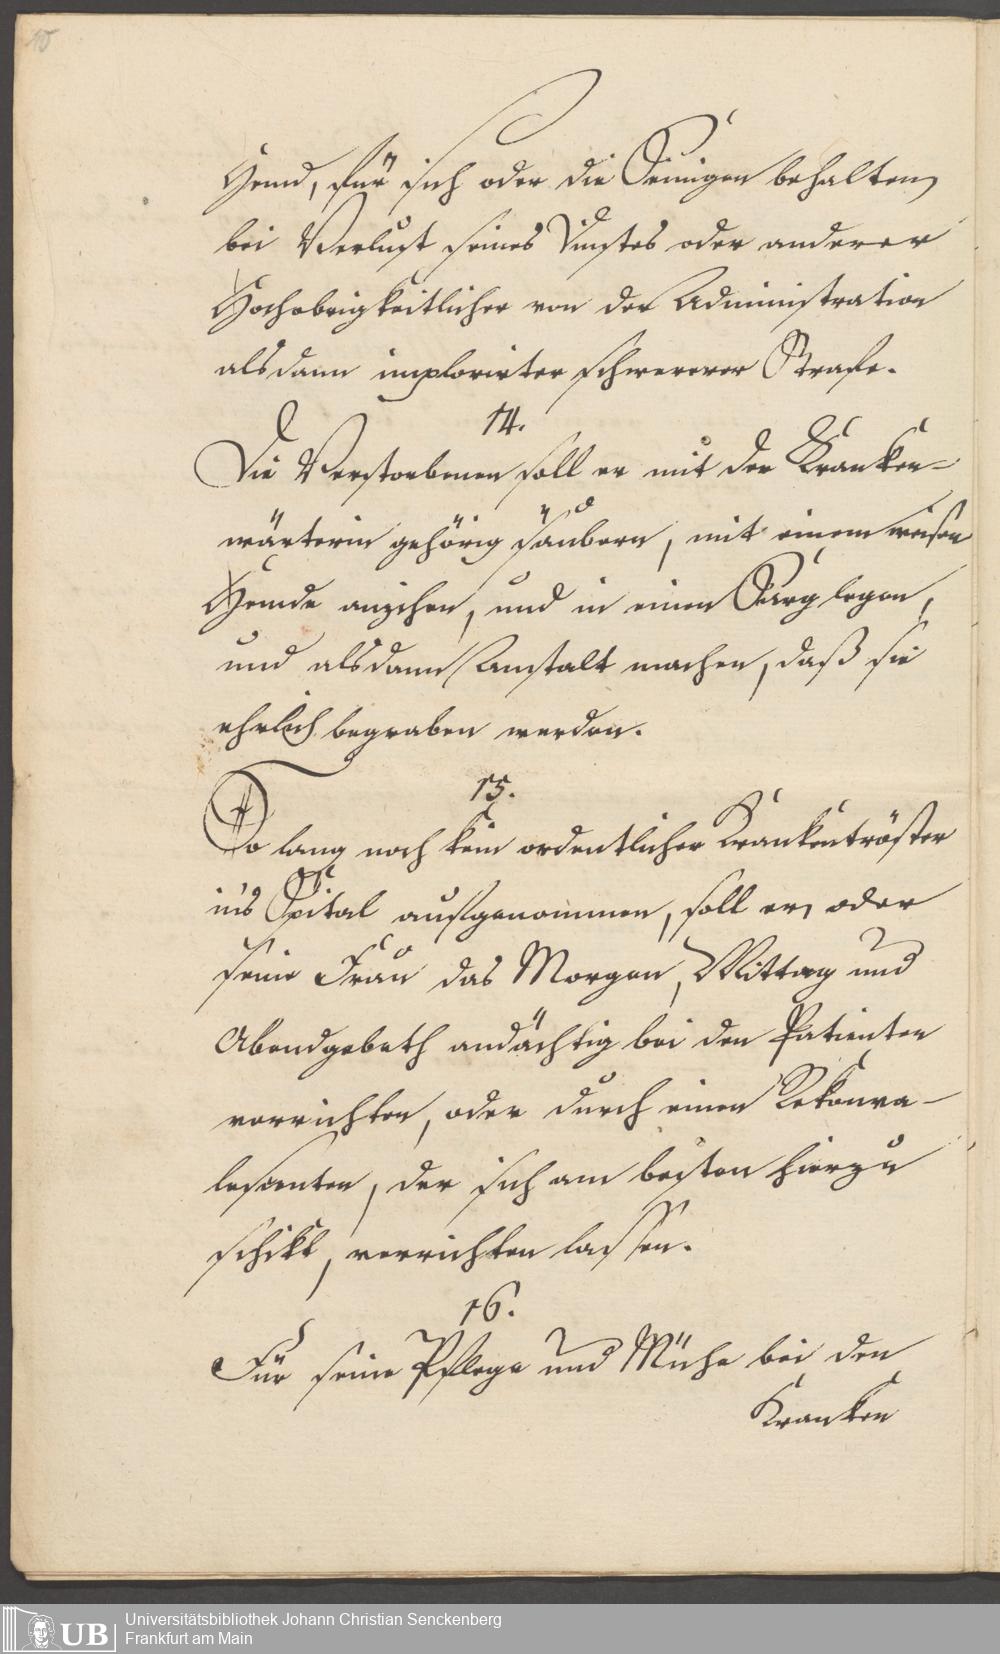 10
Hemd, für sich oder die Seinigen behalten,
bei Verlust seines Dinstes oder anderer
Hochobrigkeitlicher von der Administration
alsdann implorirter schwererer Strafe.
14.
Die Verstorbenen soll er mit der Kranken-
wärterin gehörig säubern, mit einem weisen
Hemde anziehen, und in einen Sarg legen,
und alsdann Anstalt machen, daß sie
ehrlich begraben werden.
15.
So lang noch kein ordentlicher Krankentröster
ins Spital aufgenommen, soll er, oder
seine Frau das Morgen, Mittag und
Abendgebeth andächtig bei den Patienten
verrichten, oder durch einen Rekonva-
lescenten, der sich am besten hierzu
schikt, verrichten lassen.
16.
Für seine Pflege und Mühe bei den
Kranken
UB
Universitätsbibliothek Johann Christian Senckenberg
Frankfurt am Main